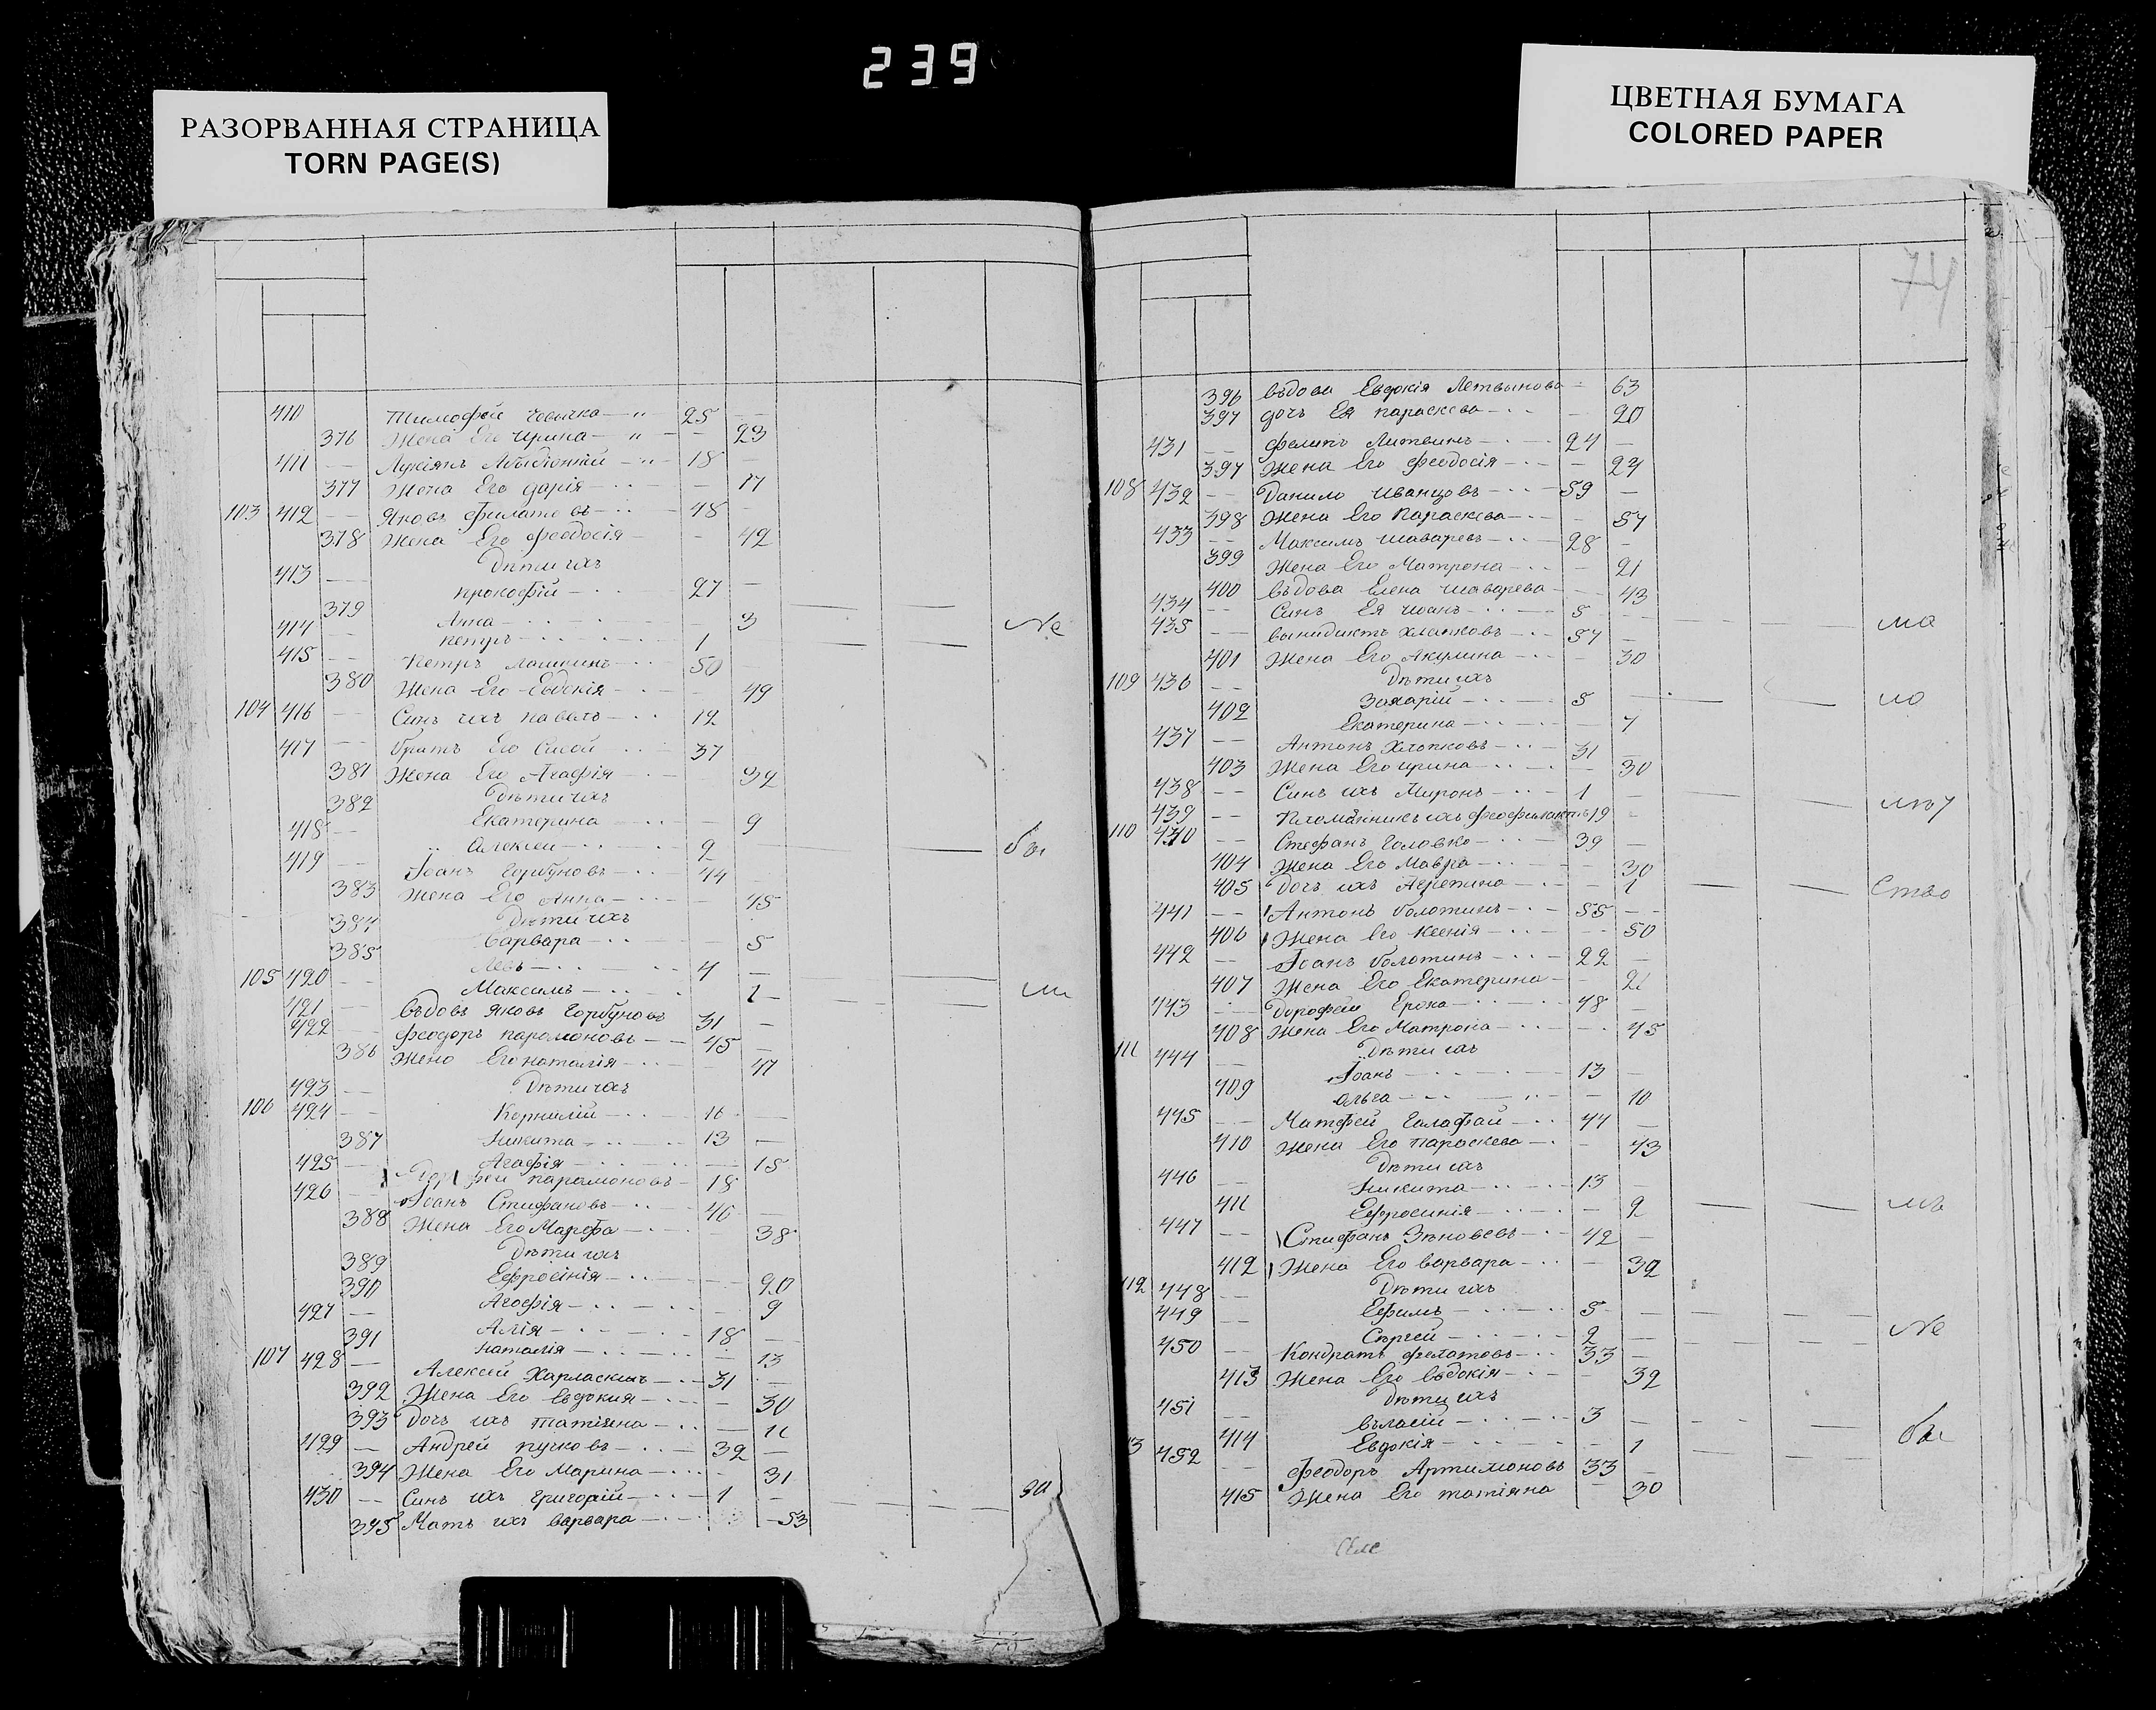 239
РАЗОРВАННАЯ СТРАНИЦА
TORN PAGE(S)
ЦВЕТНАЯ БУМАГА
COLORED PAPER
74
410 Тимофей 25
376 Жена Его Ирина 23
411 Лукіянъ 18
377 Жена Его дарія 17
103 412 Яковъ Филатовъ 48
378 Жена Его Феодосія 42
Дѣти ихъ
413 прокофій 27
379 Анна 3
414 петръ 1
Не
415 Петръ Лашкинъ 50
380 Жена Его Евдокія 49
104 416 Синъ ихъ павелъ 12
417 братъ Его Сисой 37
381 Жена Его Агафія 32
Дѣти ихъ
382 Екатерина 9
418 Алексей 2
бы
419 Іоанъ Горбуновъ 44
383 Жена Его Анна 45
Дѣти ихъ
384 Варвара 5
385 Левъ 4
105 420 Максимъ 1
ли
421 Въдовъ Яковъ Горбуновъ 31
422 Феодоръ парамоновъ 45
386 Жена Его наталія 47
Дѣти ихъ
423 Корнилій 16
106 424 Никита 13
387 Агафія 15
425 парамоновъ 18
426 Іоанъ Стифановъ 46
388 Жена Его Марфа 38
Дѣти ихъ
389 Ефросінія 20
390 Агафія 9
427 18
391 наталія 13
107 428 Алексей Харласкинъ 31
392 Жена Его Евдокия 30
393 Дочъ ихъ татіяна 11
429 Андрей пучковъ 32
394 Жена Его Марина 31
430 Синъ ихъ григорій 1
395 Мать ихъ варвара 53
за
396 Въдова Евдокія Летвынова 63
397 дочъ Ея параскева 20
431 Филипъ Литвинъ 24
397 Жена Его Феодосія 24
108 432 Данило Иванцовъ 59
398 Жена Его Параскева 57
433 Максимъ шаваревъ 28
399 Жена Его Матрона 21
400 Въдова Елена шаварева 43
434 Синъ Ея Иоанъ 5
ма
435 Хлапковъ 57
401 Жена Его Акулина 30
Дѣти ихъ
109 436 Захарій 5
402 Екатерина 7
ло
437 Антонъ Хлопковъ 31
403 Жена Его ирина 30
438 Синъ ихъ Миронъ 1
439 Пломянникъ ихъ Феофилактъ 19
лѣт
110 440 Стефанъ Головко 39
404 Жена Его Мавра 30
405 Дочъ ихъ Агрепина 1
Ство
441 Антонъ Болотинъ 55
406 Жена Его Ксенія 50
442 Іоанъ Болотинъ 22
407 Жена Его Екатерина 21
443 Дорофей Ероха 48
408 Жена Его Матрона 45
Дѣти ихъ
111 444 Іоанъ 13
409 Ольга 10
445 Матфей Галафай 44
410 Жена Его Параскева 43
Дѣти ихъ
446 Никита 13
411 Ефросинія 2
447 Стифанъ Зѣновьевъ 42
412 Жена Его Варвара 32
Дѣти ихъ
112 448 Ефимъ 5
449 Сергей 2
Не
450 Кондратъ Филатовъ 33
413 Жена Его Евдокія 32
Дѣти ихъ
451 Вьласій 3
414 Евдокія 1
бы
3 452 Феодоръ Артимоновъ 33
415 Жена Его татіяна 30